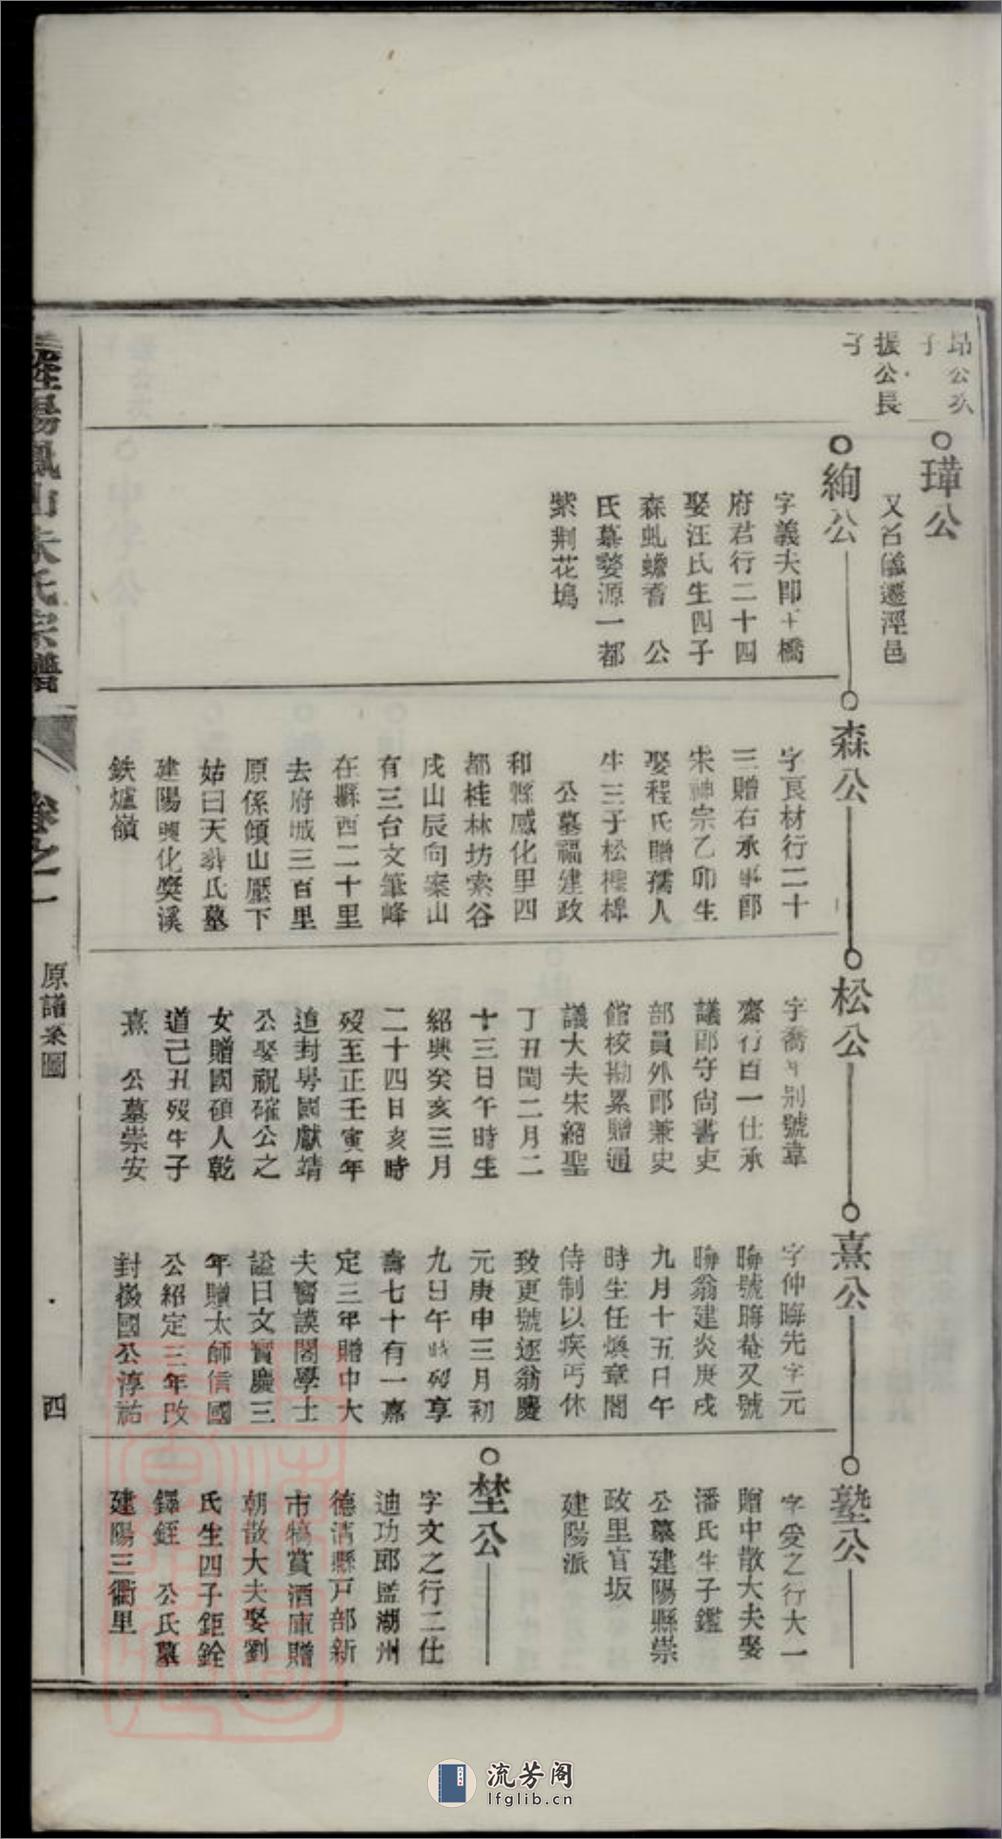 昂公次
子
振公長
子
璍公
又名儀遷涇邑
絢公
字義夫即王橋
府君行二十四
娶汪氏生四子
森虬蟾耆　公
氏墓婺源一都
紫荆花塢
森公
字良材行二十
三贈右承事郎
宋神宗乙卯生
娶程氏贈孺人
生三子松檉槔
公墓福建政
和縣感化里四
都桂林坊索谷
戌山辰向案山
有三台文筆峰
在縣西二十里
去府城三百里
原係傾山壓下
姑曰天葬氏墓
建陽興化奬溪
鉄爐嶺
松公
字喬年别號韋
齋行百一仕承
議郎守尚書吏
部員外郎兼史
館校勘累贈通
議大夫宋紹聖
丁丑閏二月二
十三日午時生
紹興癸亥三月
二十四日亥時
歿至正壬寅年
追封粤國獻靖
公娶祝確公之
女贈國碩人乾
道己丑歿生子
熹　公墓崇安
熹公
字仲晦先字元
晦號晦菴又號
晦翁建炎庚戌
九月十五日午
時生任煥章閣
侍制以疾丐休
致更號逐翁慶
元庚申三月初
九日午時殁享
壽七十有一嘉
定三年贈中大
夫寳謨閣學士
諡曰文寳慶三
年贈太師信國
公紹定三年改
封徽國公淳祐
塾公
字受之行大一
贈中散大夫娶
潘氏生子鑑
公墓建陽縣崇
政里官坂
建陽派
埜公
字文之行二仕
迪功郎監湖州
德清縣戸部新
市犒賞酒庫贈
朝散大夫娶劉
氏生四子鉅銓
鐸銍　公氏墓
建陽三衢里
陽鳳山朱氏宗譜
卷之一
原譜系圖
四
流芳阁
lfglib.cn